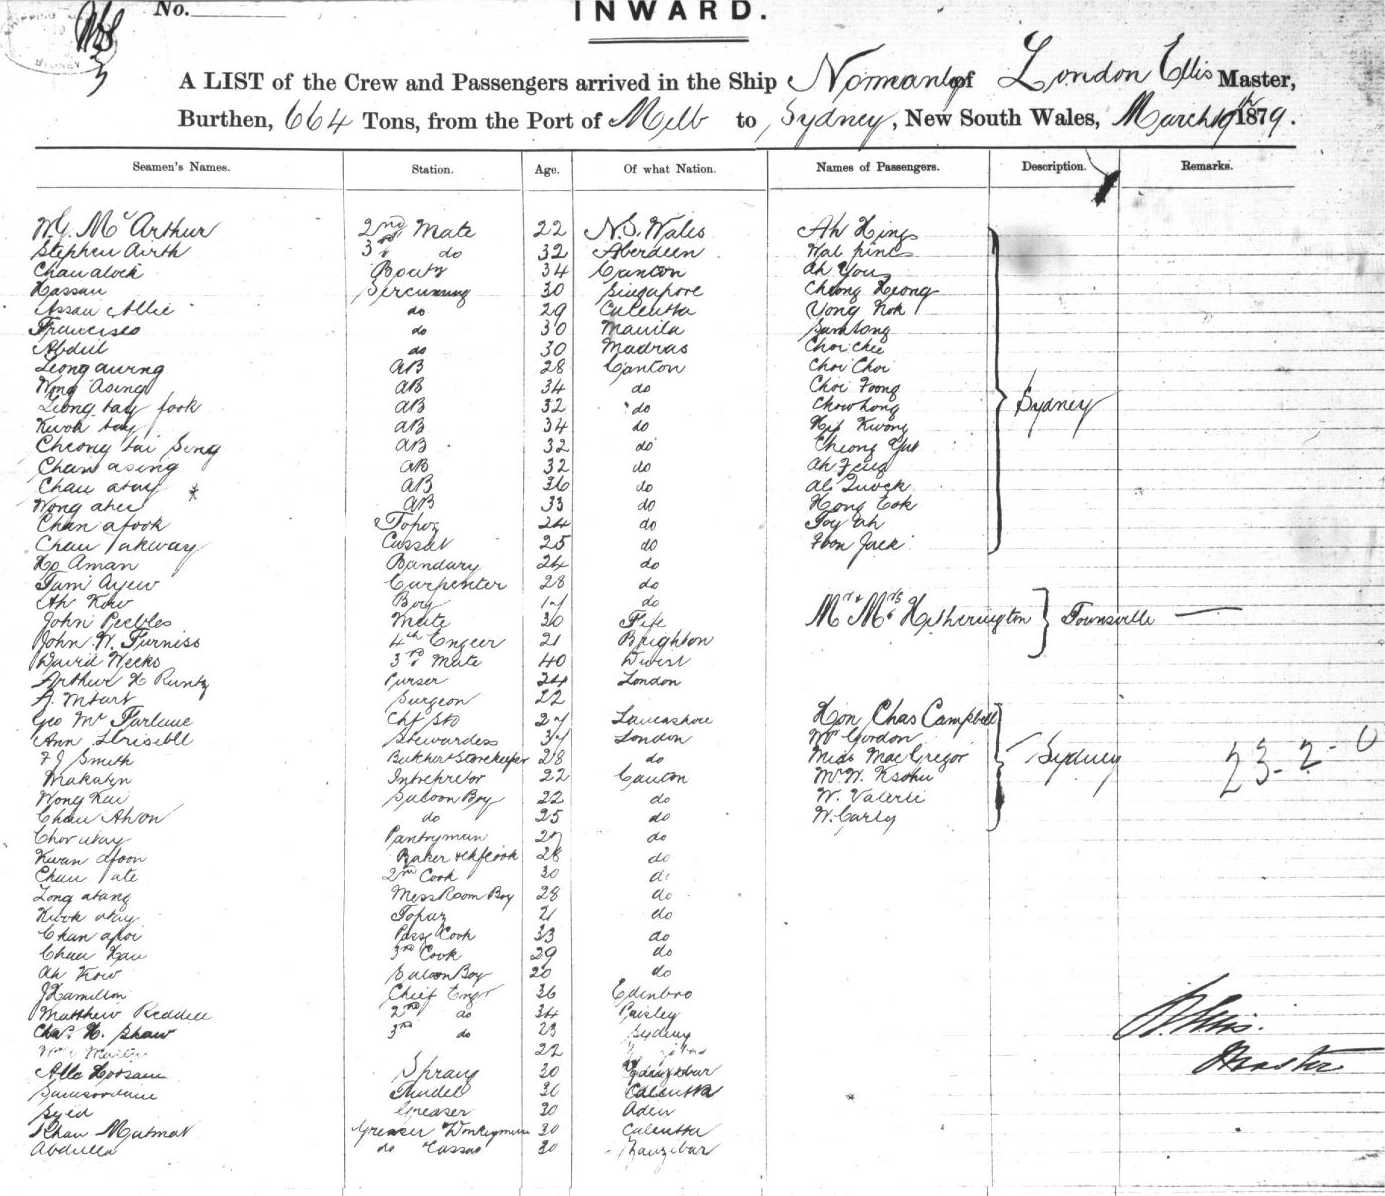 No.
INWARD.
A LIST of the Crew and Passengers arrived in the Ship Normanby of London Ellis Master,
Burthen, 664 Tons, from the Port of Melb to Sydney, New South Wales, March 19th 1879.
Seamen's Names. Station. Age. Of what Nation. Names of Passengers. Description. Remarks.
W.G. McArthur 2nd Mate 22 N.S. Wales Ah Hing
Stephen Airth 3rd do 32 Aberdeen
Chau alock 34 Canton Ah You
Hassan 30 Singapore Cheong Keong
Assau Allie do 29 Calcutta Yong
Francisco do 30 Manila
Abdul do 30 Madras Choi Chee
Leong aurng AB 28 Canton Choi Choi
Wong Asing AB 34 do Choi Foong
Leong tay fook AB 32 do Chow hong Sydney
Kwok tay AB 34 do Kwong
Cheong tai Sing AB 32 do Cheong
Chan asing AB 32 do
Chau atay * AB 36 do
Wong ahee AB 33 do Hong
Chan afook Topaz 24 do
Chau akway Cassat 25 do Jack
Ho Aman Bandary 24 do
Tam Ayew Carpenter 28 do
Ah Kow Boy 17 do
John Peebles Mate 30 Fife Mr & Mrs Hetherington Townsville
John W. Furniss 4th Engeer 21 Brighton
David Weeks 3rd Mate 40
Arthur H Runtz Purser 24 London
Surgeon 22
Geo McFarlane Chf Sto 27 Lancashire Hon Chas Campbell
Ann Stewardess 37 London Mr Gordon
F J Smith Butcher & Storekeeper 28 do Miss MacGregor Sydney 23-2-0
Makalyn Interpretor 22 Canton Mr W.
Wong Kui Saloon Boy 22 do W.
Chau Ahon do 25 do W. Carly
Choi atay Pantryman 27 do
Kwan afoon Baker & Chf Cook 28 do
Chau ate 2nd Cook 30 do
Long atang Mess Room Boy 28 do
Kwok atay Topaz 21 do
Chan apoi Pass Cook 33 do
Chau Kau 3rd Cook 29 do
Ah Kow Saloon Boy 20 do
J Hamilton Chief Enger 36 Edinbro
Matthew Reddell 2nd do 34 Paisley
Chas. H. Shaw 3rd do 23 Sydney
Martin 22
Alle Hossain 30 Zanzibar
Tindel 30 Calcutta
Syed Greaser 30 Aden
Khan Greaser Donkeyman 30 Calcutta
Abdulla do Cassab 30 Zanzibar
Ellis.
Master